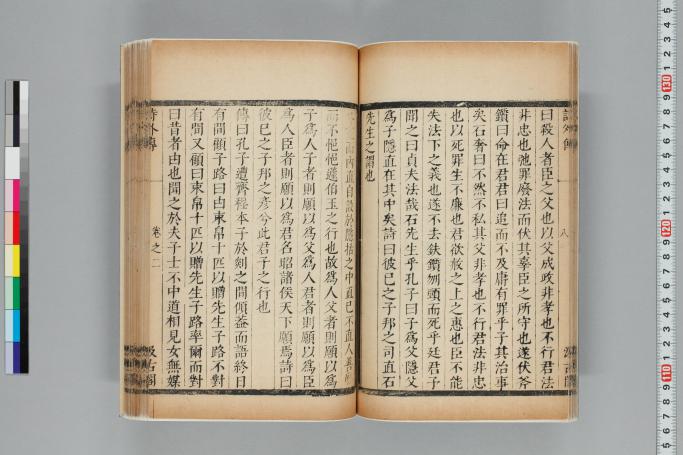 曰殺人者臣之父也以父成政非孝也不行君法
非忠也弛罪廢法而伏其辜臣之所守也遂伏斧
鑕曰命在君君曰追而不及庸有罪乎子其治事
矣石奢曰不然不私其父非孝也不行君法非忠
也以死罪生不廉也君欲赦之上之惠也臣不能
失法下之義也遂不去鈇鑕刎頸而死乎廷君子
聞之曰貞夫法哉石先生乎孔子曰子爲父隱父
爲子隱直在其中矣詩曰彼已之子邦之司直石
先生之謂也
而內直自設於隱括之中直已不直人
而不悒悒蘧伯玉之行也故爲人父者則願以爲
子爲人子者則願以爲父爲人君者則願以爲臣
爲人臣者則願以爲君名昭諸侯天下願焉詩曰
彼已之子邦之彥兮此君子之行也
傳曰孔子遭齊程本子於剡之間傾蓋而語終日
有間顧子路曰由束帛十匹以贈先生子路不對
有間又顧曰束帛十匹以贈先生子路率爾而對
曰昔者由也聞之於夫子士不中道相見女無媒
詩外傳
卷之二
汲古閣